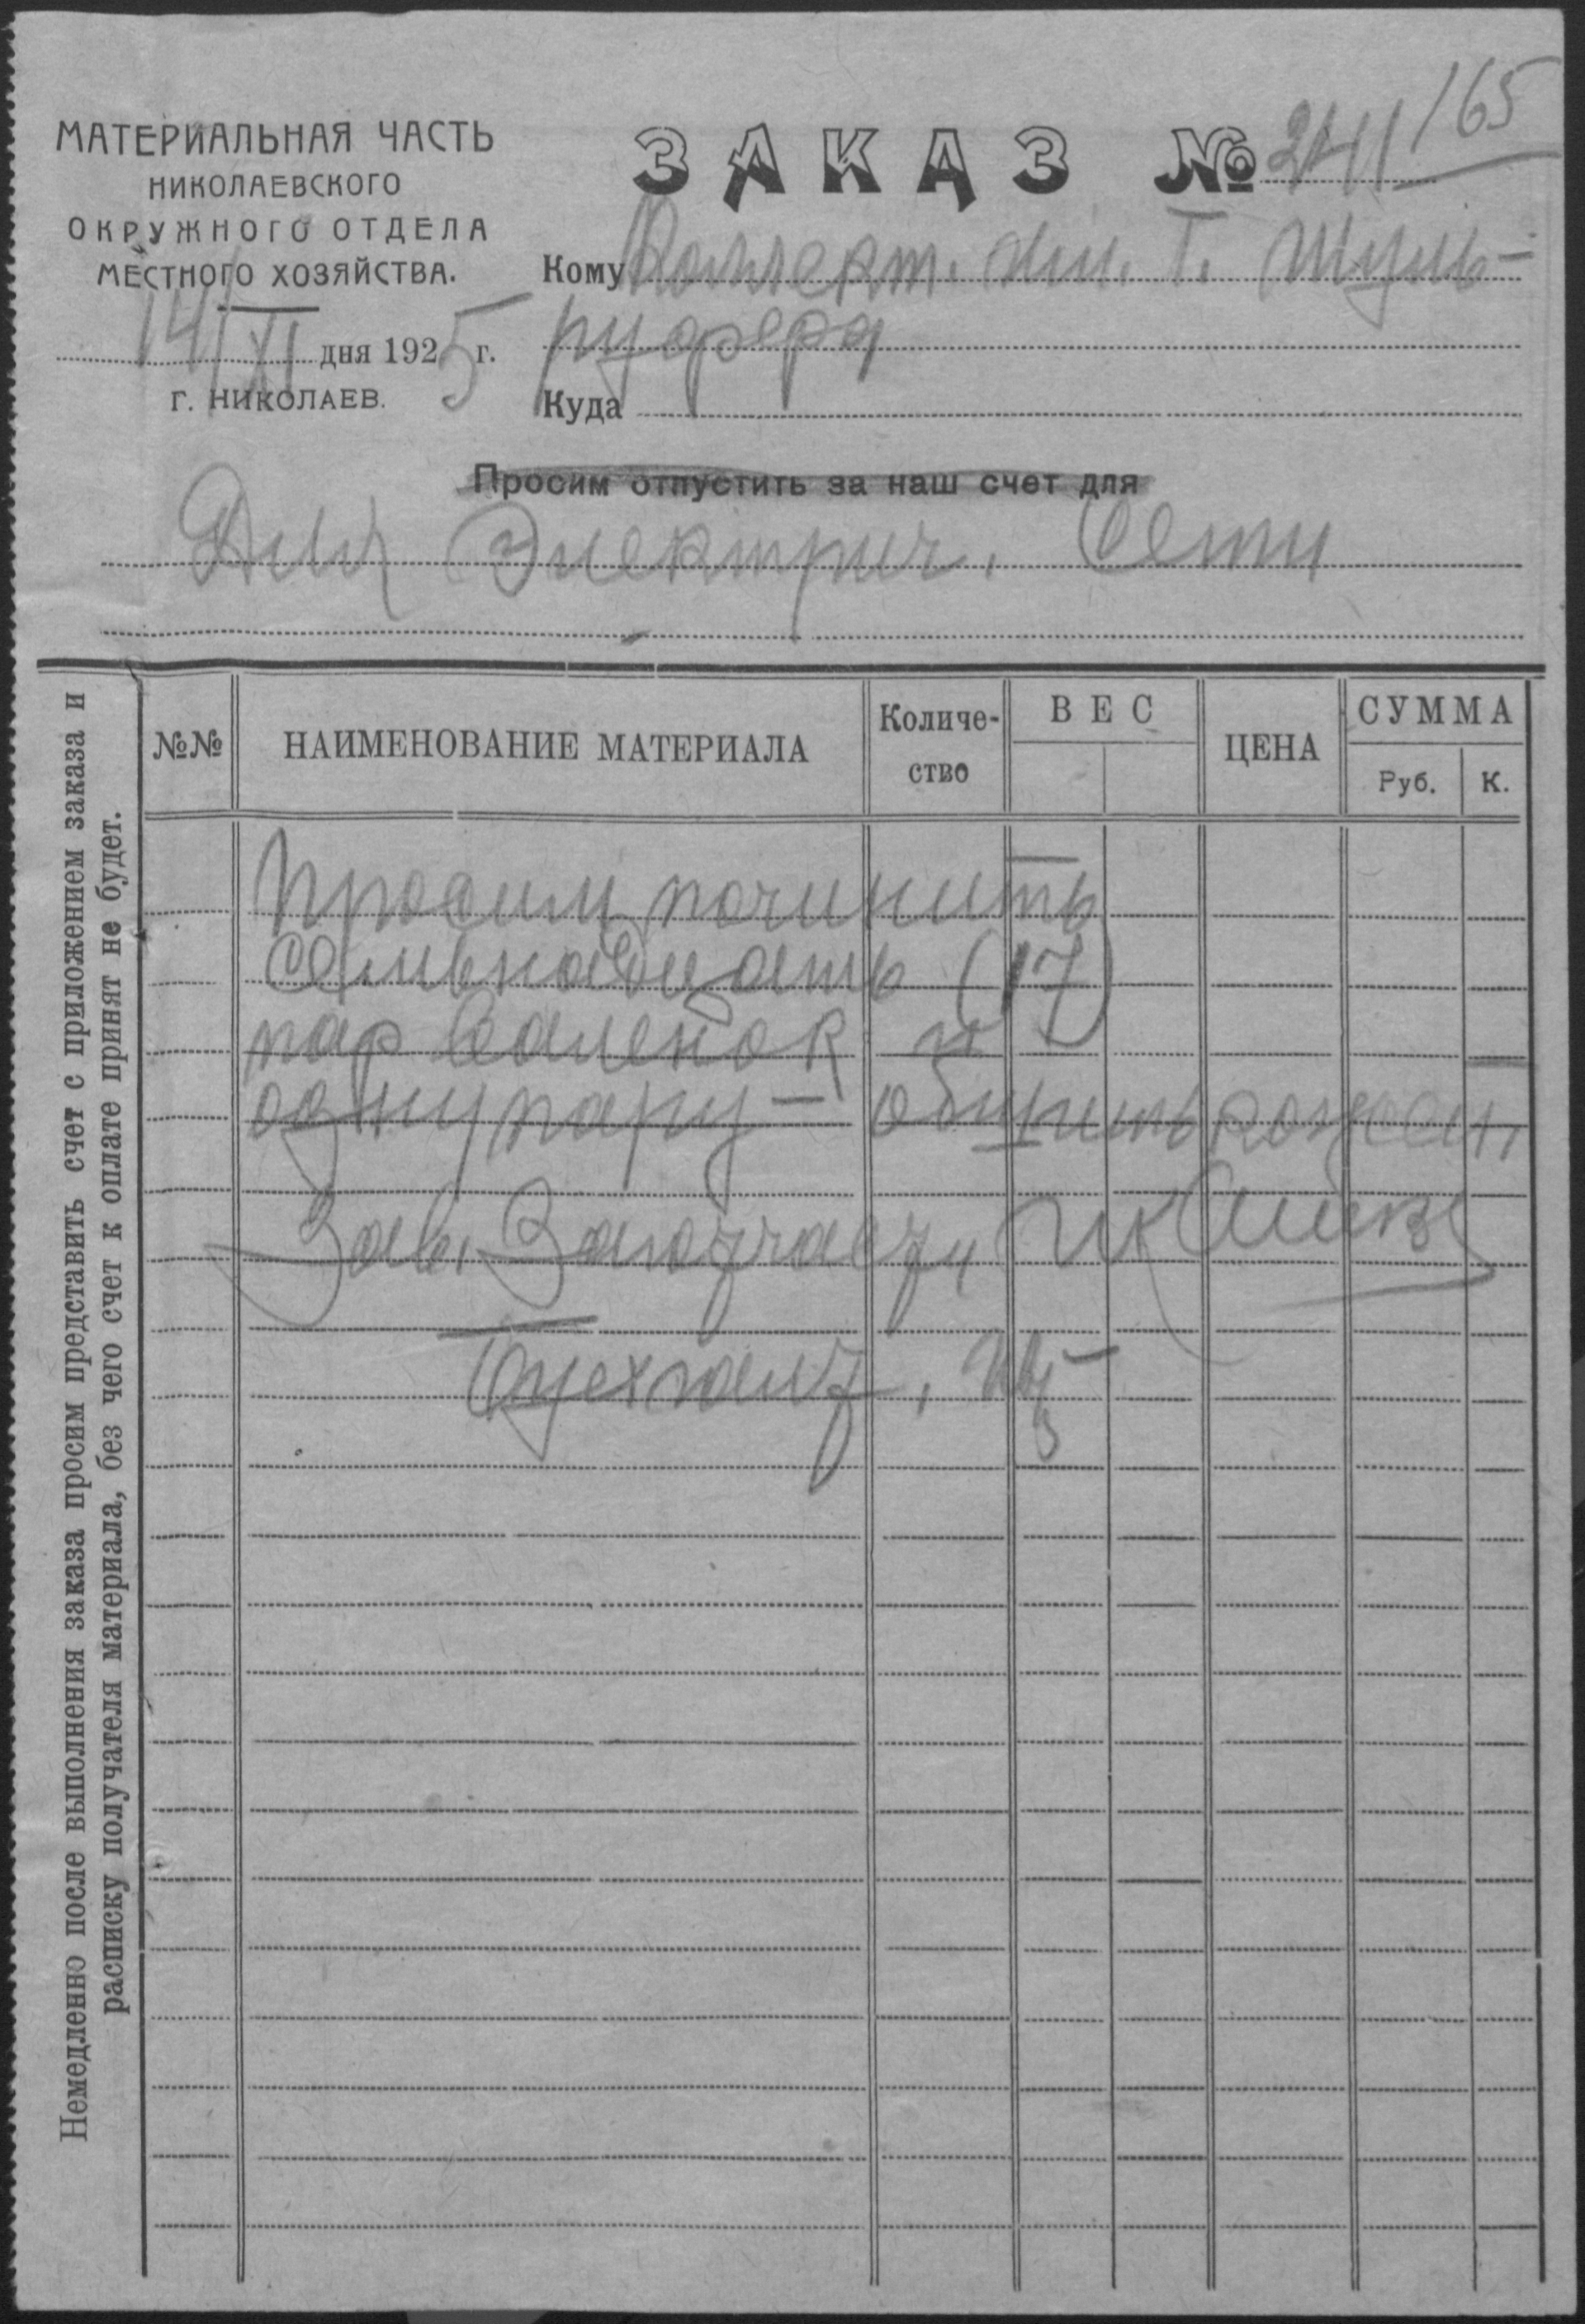 МАТЕРИАЛЬНАЯ ЧАСТЬ
НИКОЛАЕВСКОГО
ОКРУЖНОГО ОТДЕЛА
МЕСТНОГО ХОЗЯЙСТВА.
14/XI дня 1925 г.
Г. НИКОЛАЕВ.
ЗАКАЗ № 2411/165
Кому Коллект. им. Т. Шуль-
цефера
Куда
Просим отпустить за наш счет для
Для Электрич. Сети
№№ НАИМЕНОВАНИЕ МАТЕРИАЛА Количе-ство ВЕС ЦЕНА СУММА Руб. К.
Просим починить
семьнадцать (17)
пар валенок и
одну пару — обшить кожей,
Зав.
Немедленно после выполнения заказа просим представить счет с приложением заказа и
расписку получателя материала, без чего счет к оплате принят не будет.